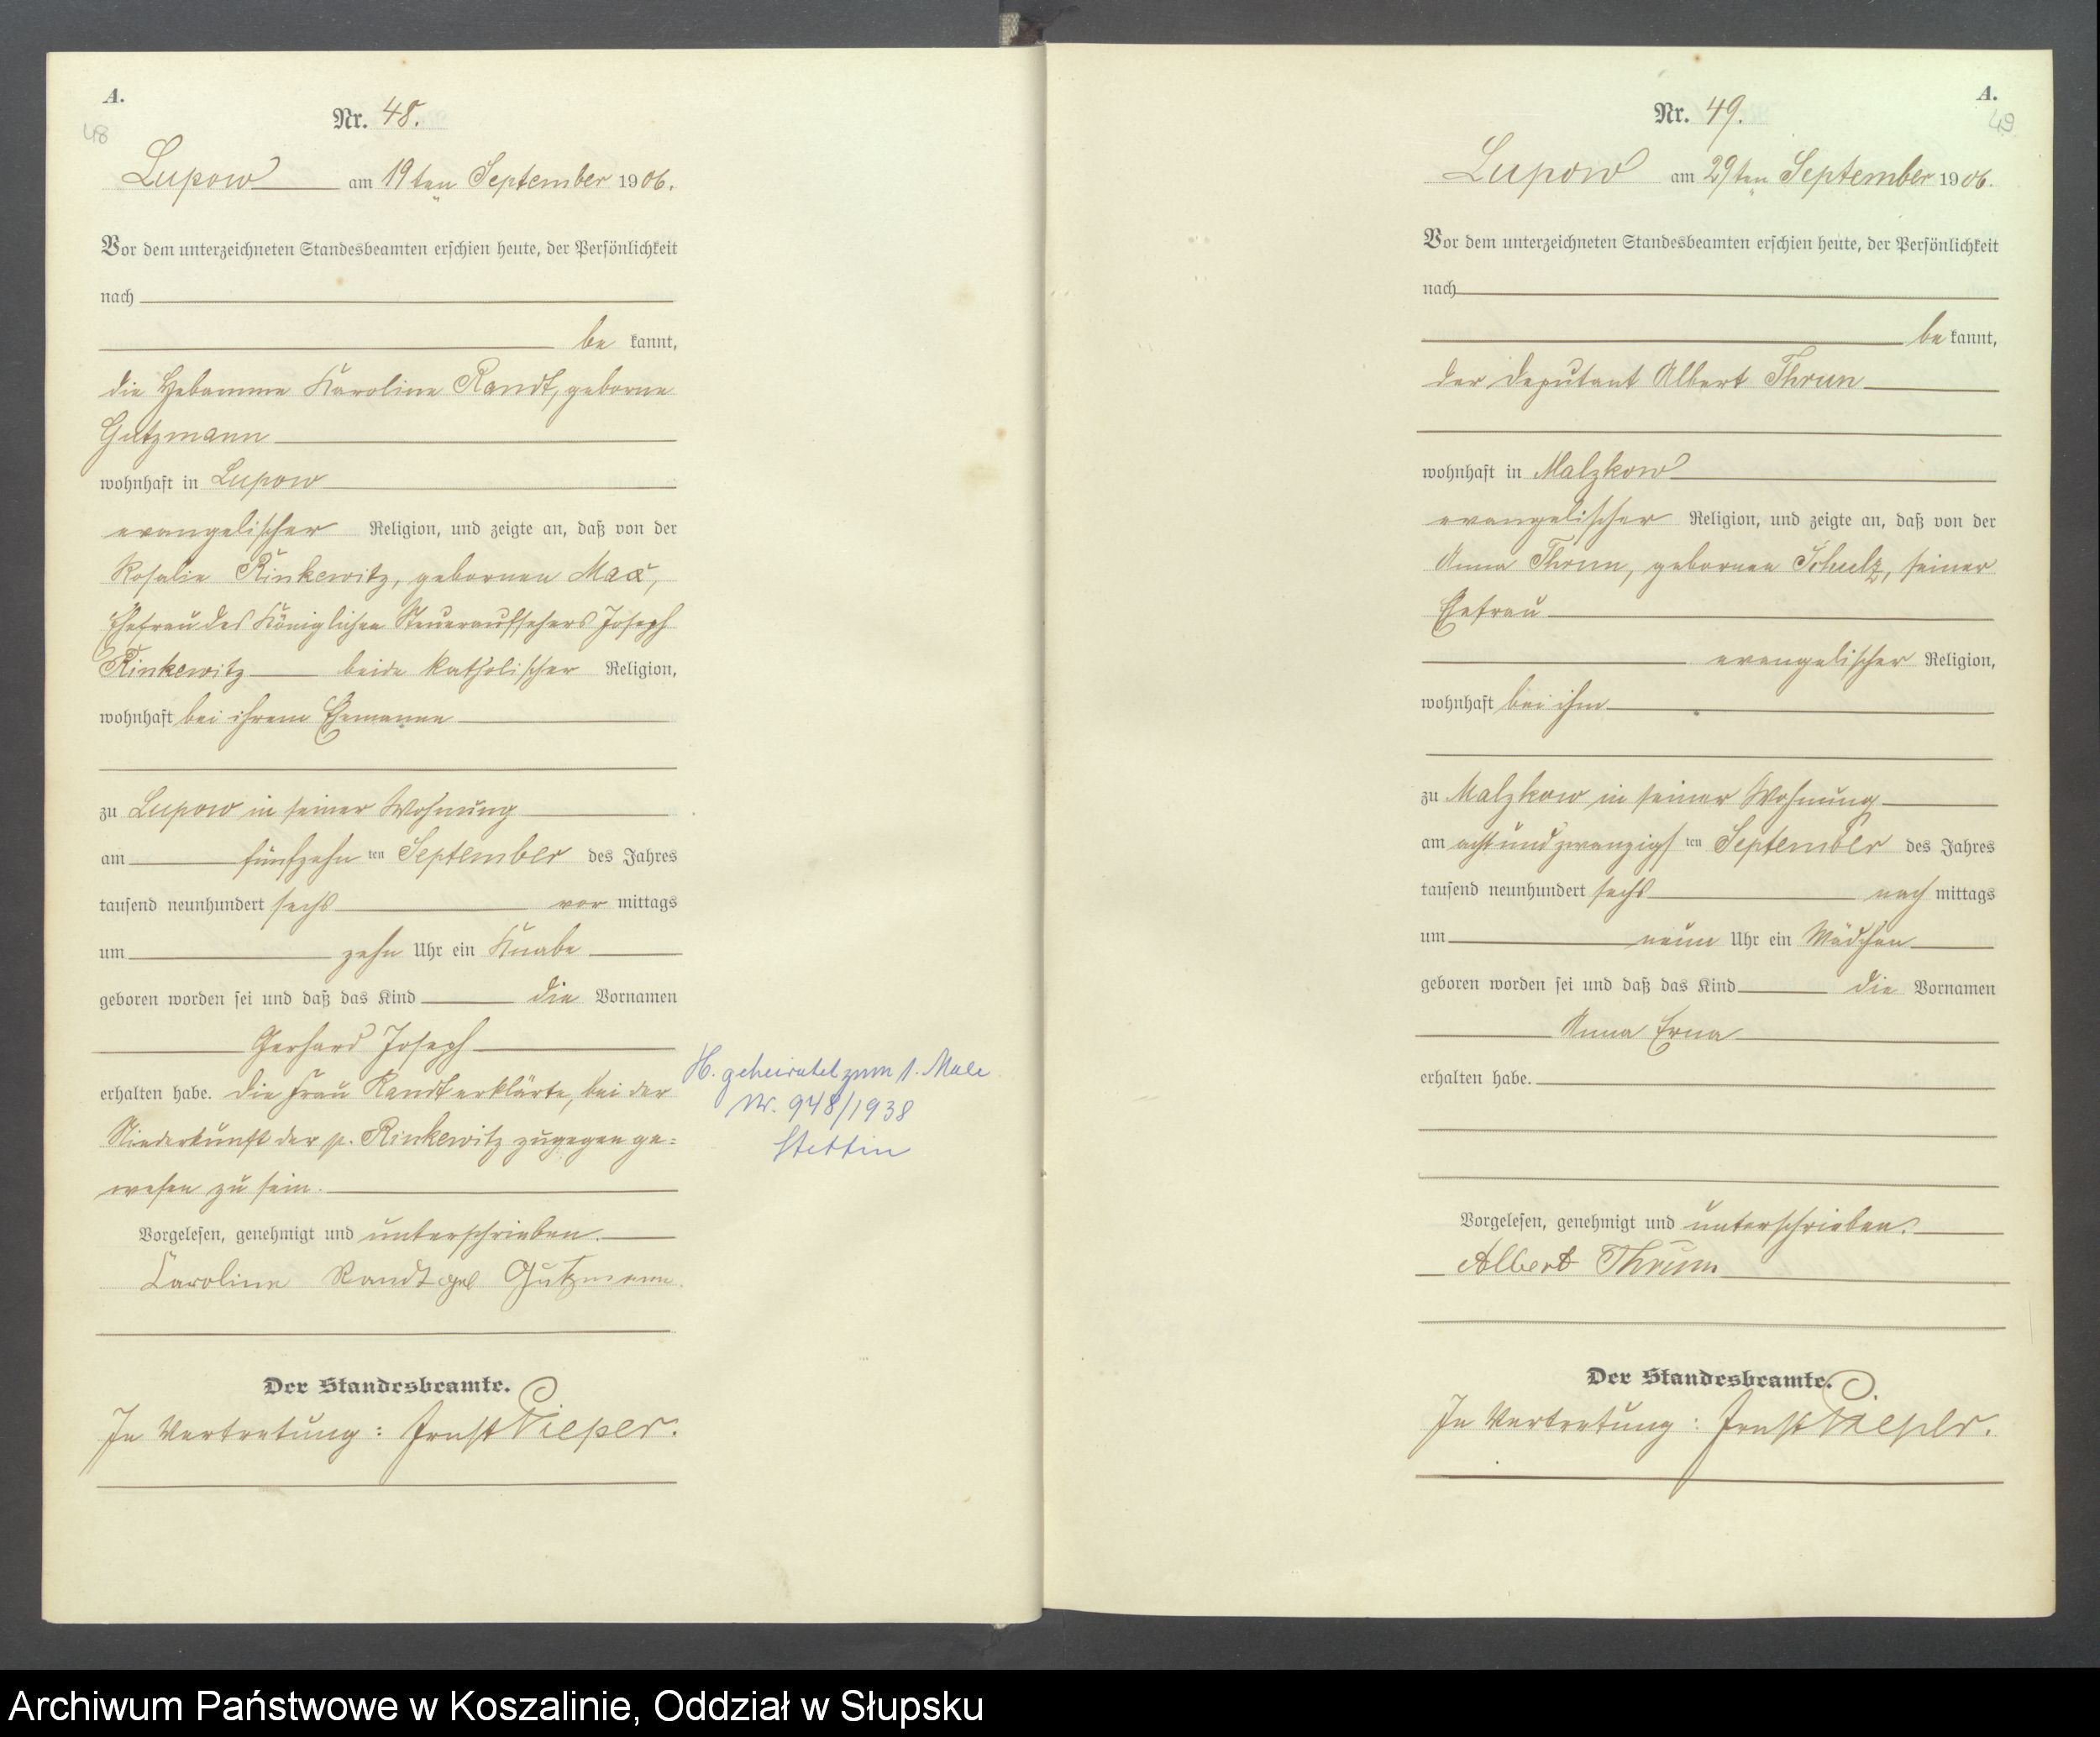 A.
48
Nr. 48.
Lupow am 19ten September 1906.
Vor dem unterzeichneten Standesbeamten erschien heute, der Persönlichkeit
nach
be kannt,
die Hebamme Karoline Randt, geborne
Gutzmann
wohnhaft in Lupow
evangelischer Religion, und zeigte an, daß von der
Rosalie Rinkewitz, gebornen
Ehefrau des Königlichen Steueraufsehers Joseph
Rinkewitz beide katholischer Religion,
wohnhaft bei ihrem Ehemanne
zu Lupow in seiner Wohnung
am fünfzehn ten September des Jahres
tausend neunhundert sechs vor mittags
um zehn Uhr ein Knabe
geboren worden sei und daß das Kind die Vornamen
Gerhard Joseph
erhalten habe. Die Frau Randt erklärte, bei der
Niederkunft der p. Rinkewitz zugegen ge=
wesen zu sein.
Vorgelesen, genehmigt und unterschrieben.
Caroline Randt geb Gutzmann.
Der Standesbeamte.
In Vertretung: Ernst Pieper.
H. geheiratet zum 1. Male
Nr. 948/1938
Stettin
A.
49
Nr. 49.
Lupow am 29ten September 1906.
Vor dem unterzeichneten Standesbeamten erschien heute, der Persönlichkeit
nach
be kannt,
der Deputant Albert Thrun
wohnhaft in Malzkow
evangelischer Religion, und zeigte an, daß von der
Anna Thrun, gebornen Schulz, seiner
Ehefrau
evangelischer Religion,
wohnhaft bei ihm
zu Malzkow in seiner Wohnung
am achtundzwanzigs ten September des Jahres
tausend neunhundert sechs nach mittags
um neun Uhr ein Mädchen
geboren worden sei und daß das Kind die Vornamen
Anna Erna
erhalten habe.
Vorgelesen, genehmigt und unterschrieben.
Albert Thrun
Der Standesbeamte.
In Vertretung: Ernst Pieper.
Archiwum Państwowe w Koszalinie, Oddział w Słupsku